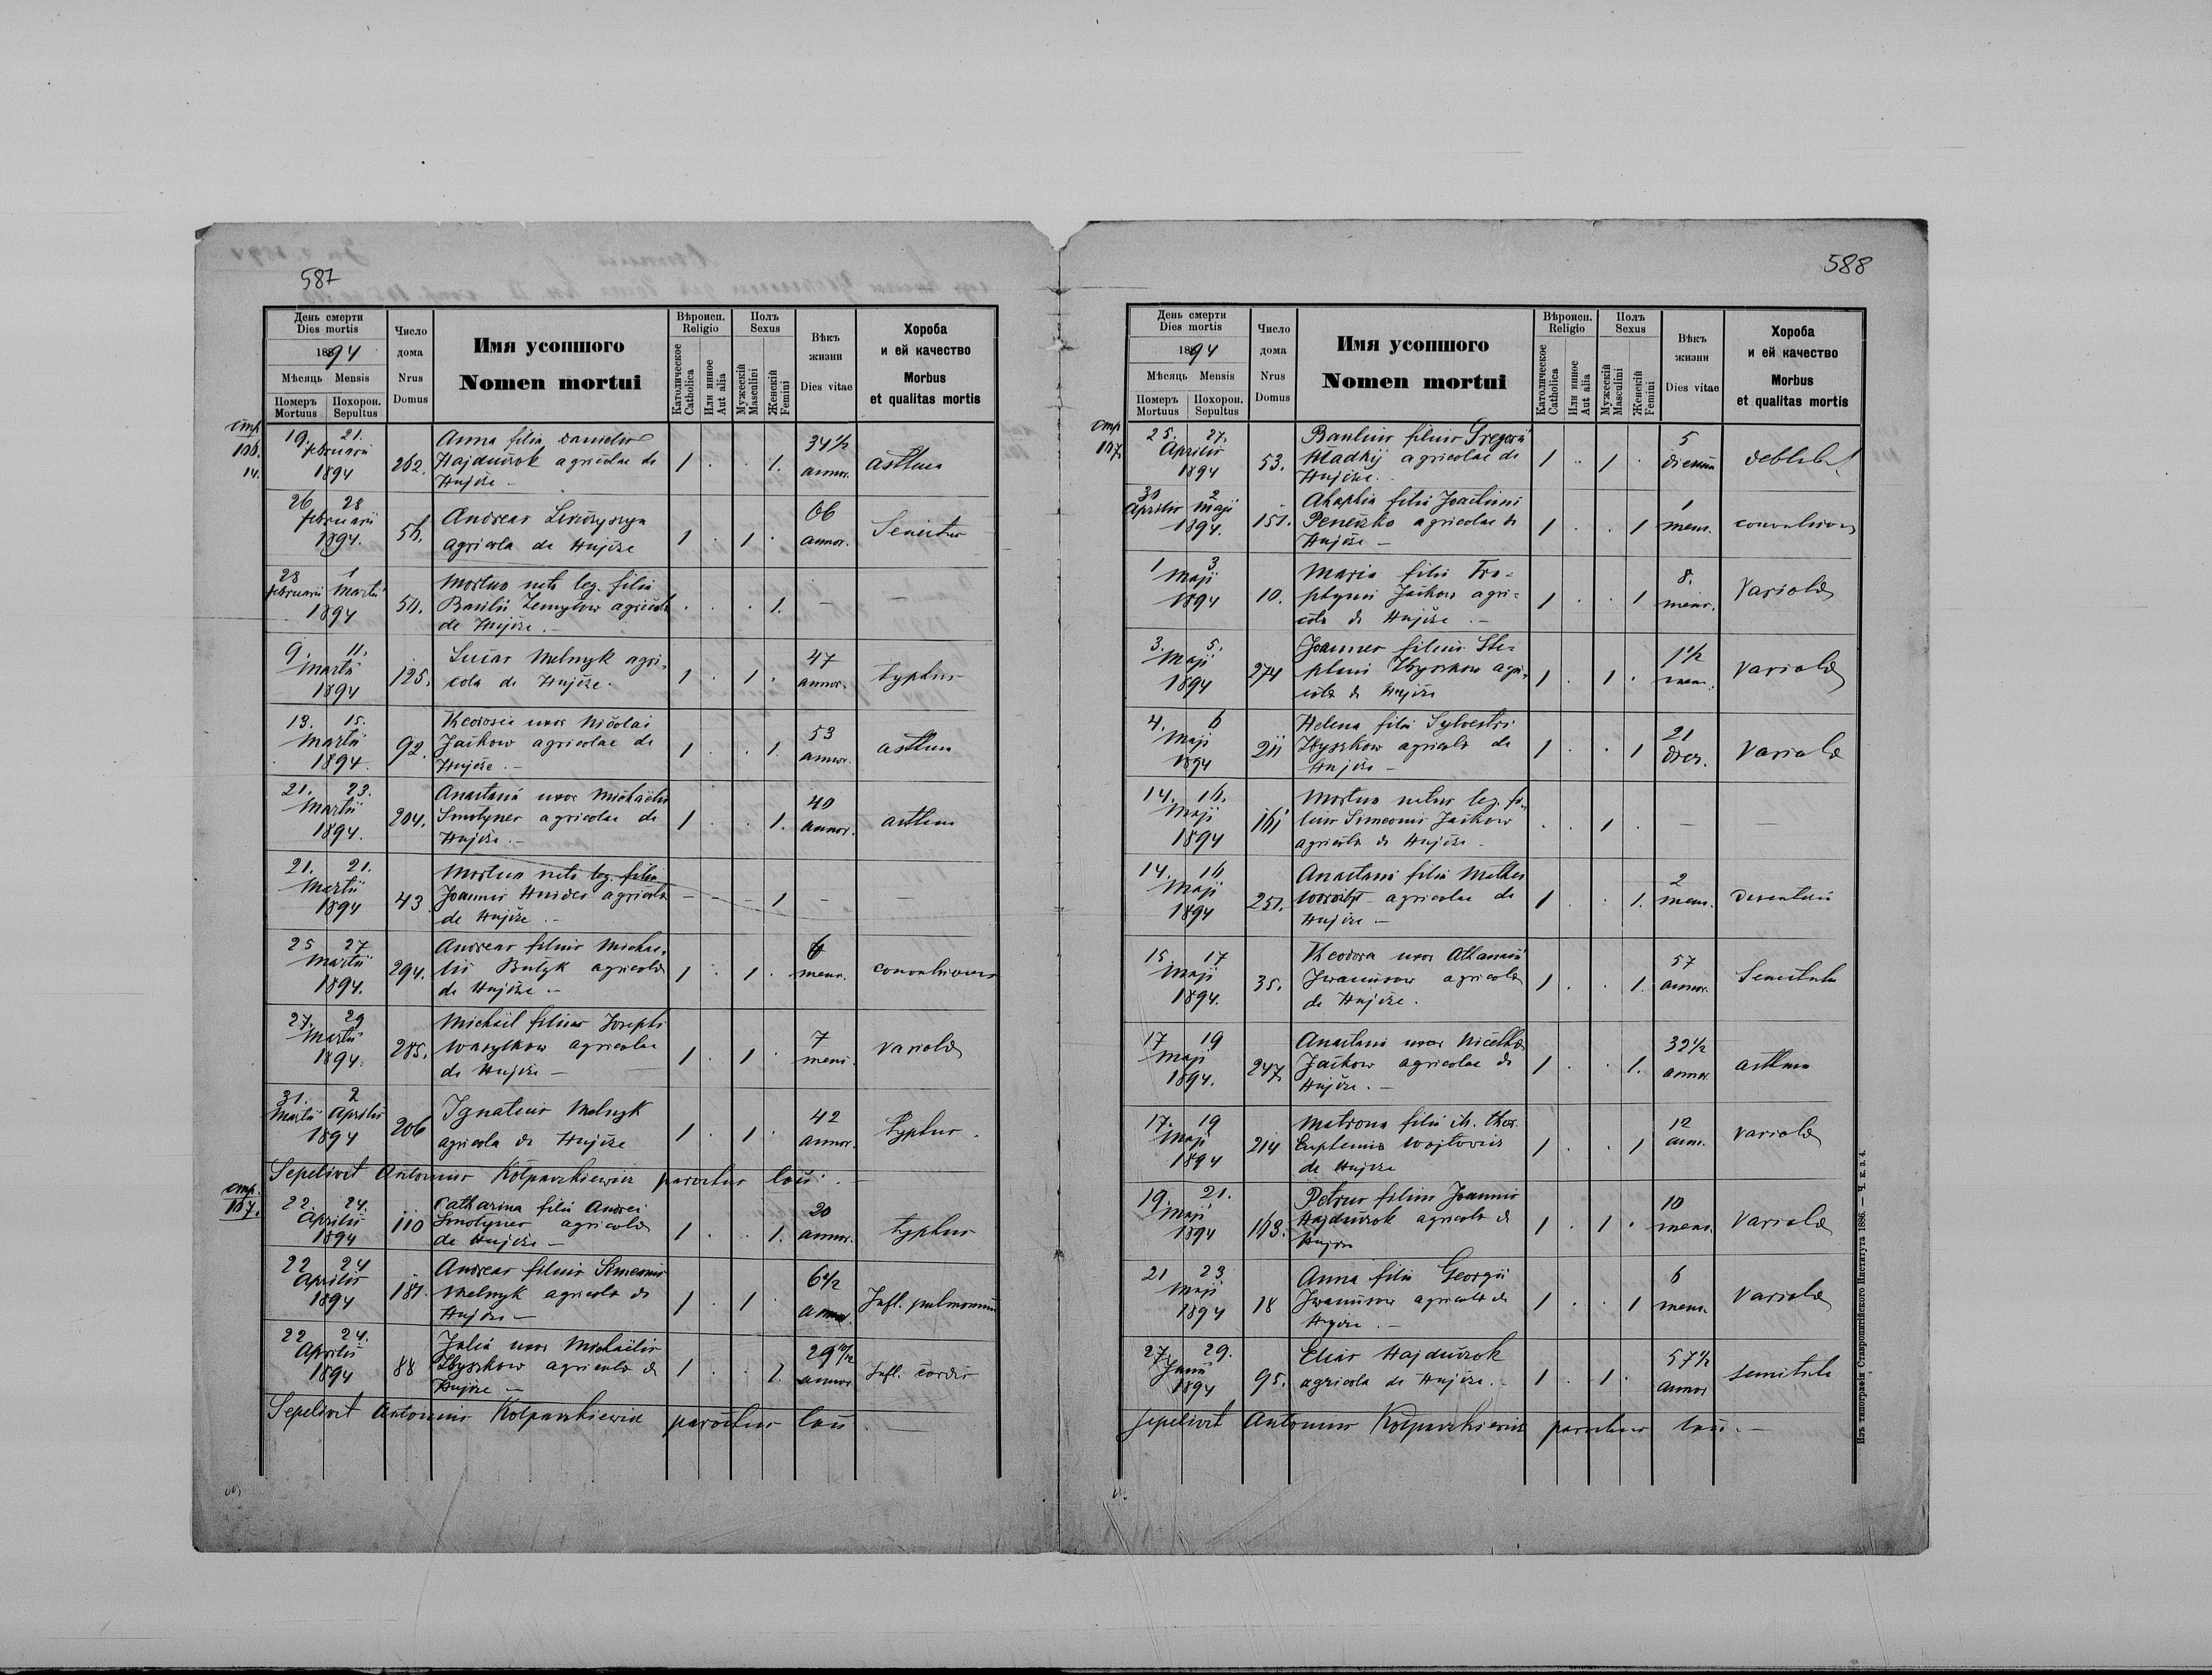 587
День смерти
Dies mortis
1894
Мѣсяць Mensis
Померъ Mortuus
Похорон. Sepultus
Число дома
Nrus Domus
Имя усопшого
Nomen mortui
Вѣроисп. Religio
Католическое Catholica
Или инное Aut alia
Полъ Sexus
Мужескій Masculini
Женскій Femini
Вѣкъ жизни
Dies vitae
Хороба и ей качество
Morbus et qualitas mortis
стр.
106.
14.
19. 21.
februarii
1894
262.
Anna filia Danielis
Hajduczok agricolae de
Hujcze –
1 . . 1.
34 1/2
annor.
asthma
26 28
februarii
1894.
Andreas
agricola de Hujcze
1 . 1 .
66
annor.
Senectus
28 1
februarii Martii
1894
54.
Mortua nata leg. filia
Basilii agricolae
de Hujcze. –
. . . 1.
– –
9. 11.
Martii
1894
125.
Lucas Melnyk agri-
cola de Hujcze.
1 . 1 .
47
annor.
typhus
13. 15.
Martii
1894.
92.
Theodosia uxor Nicolai
Jaćkow agricolae de
Hujcze. –
1 . . 1.
53
annor.
asthma
21. 23.
Martii
1894.
204.
Anastasia uxor Michaelis
Smolynec agricolae de
Hujcze. –
1 . . 1.
40
annor.
asthma
21. 21.
Martii
1894
43
Mortua nata leg. filia
Joannis agricolae
de Hujcze. –
– – 1
– –
25 27
Martii
1894.
294.
Andreas filius Michae-
lis Butyk agricolae
de Hujcze –
1 . 1 .
6
mens.
convulsiones
27. 29
Martii
1894.
285.
Michael filius Josephi
Wasylkow agricolae
de Hujcze –
1 . 1 .
7
mens.
variola
31. 2
Martii Aprilis
1894
206
Ignatius Melnyk
agricola de Hujcze
1 . 1 .
42
annor.
typhus.
Sepelivit Antonius Kołpaczkiewicz parochus loci. –
стр.
107.
22. 24.
Aprilis
1894
110
Catharina filia Andrei
Smolynec agricolae
de Hujcze –
1 . . 1.
20
annor.
typhus
22 24
Aprilis
1894
181.
Andreas filius Simeonis
Melnyk agricolae de
Hujcze –
1 . 1 .
6 1/2
annor.
Infl. pulmonum
22 24.
Aprilis
1894
88
Julia uxor Michaelis
Zbyszkow agricolae de
Hujcze –
1 . . 1.
29
annor
Infl. cordis
Sepelivit Antonius Kołpaczkiewicz parochus loci. –
588
День смерти
Dies mortis
1894
Мѣсяць Mensis
Померъ Mortuus
Похорон. Sepultus
Число дома
Nrus Domus
Имя усопшого
Nomen mortui
Вѣроисп. Religio
Католическое Catholica
Или инное Aut alia
Полъ Sexus
Мужескій Masculini
Женскій Femini
Вѣкъ жизни
Dies vitae
Хороба и ей качество
Morbus et qualitas mortis
стр
107.
25. 27.
Aprilis
1894
53.
Basilius filius Gregorii
Hładkij agricolae de
Hujcze.
1 . 1 .
5
dierum
30 2
Aprilis Maji
1894.
151.
Ahaphia filia Joachimi
agricolae de
Hujcze –
1 . . 1
1
mens.
convulsiones
1 3.
Maji
1894
10.
Maria filia Tro-
phymi Jaćkow agri-
colae de Hujcze. –
1 . . 1
8.
mens.
Variola
3. 5.
Maji
1894
274
Joannes filius Ste-
phani Zbyszkow agri-
colae de Hujcze
1 . 1 .
1 1/2
mens.
Variola
4. 6
Maji
1894
211
Helena filia Sylvestri
Zbyszkow agricolae de
Hujcze –
1 . . 1
21
dier.
Variola
14. 16.
Maji
1894
161
Mortuus natus leg. fi-
lius Simeonis Jaćkow
agricolae de Hujcze –
. . 1 .
– –
14. 16
Maji
1894
251.
Anastasia filia Mathei
agricolae de
Hujcze –
1 . . 1.
2
mens.
15. 17
Maji
1894.
35.
Theodora uxor Athanasii
Iwanusow agricolae
de Hujcze.
1 . . 1.
57
annor.
17 19
Maji
1894.
247.
Anastasia uxor Nicetae
Jaćkow agricolae de
Hujcze. –
1 . . 1.
32 1/2
annor.
asthma
17. 19
Maji
1894
214
Matrona filia ill. thor.
Euphemia Wojtowicz
de Hujcze
1 . . 1
12
ann.
Variola
19. 21.
Maji
1894
163.
Petrus filius Joannis
Hajduczok agricolae de
Hujcze
1 . 1 .
10
mens.
Variola
21 23.
Maji
1894
18
Anna filia Georgii
Iwanusow agricolae de
Hujcze. –
1 . . 1
6
mens.
Variola
27. 29.
Junii
1894
95.
Elias Hajduczok
agricola de Hujcze. –
1 . 1 .
57 1/2
annor
Sepelivit Antonius Kołpaczkiewicz parochus loci. –
Изъ типографіи Ставропигійского Института 1886. — Ч. к. з. 4.